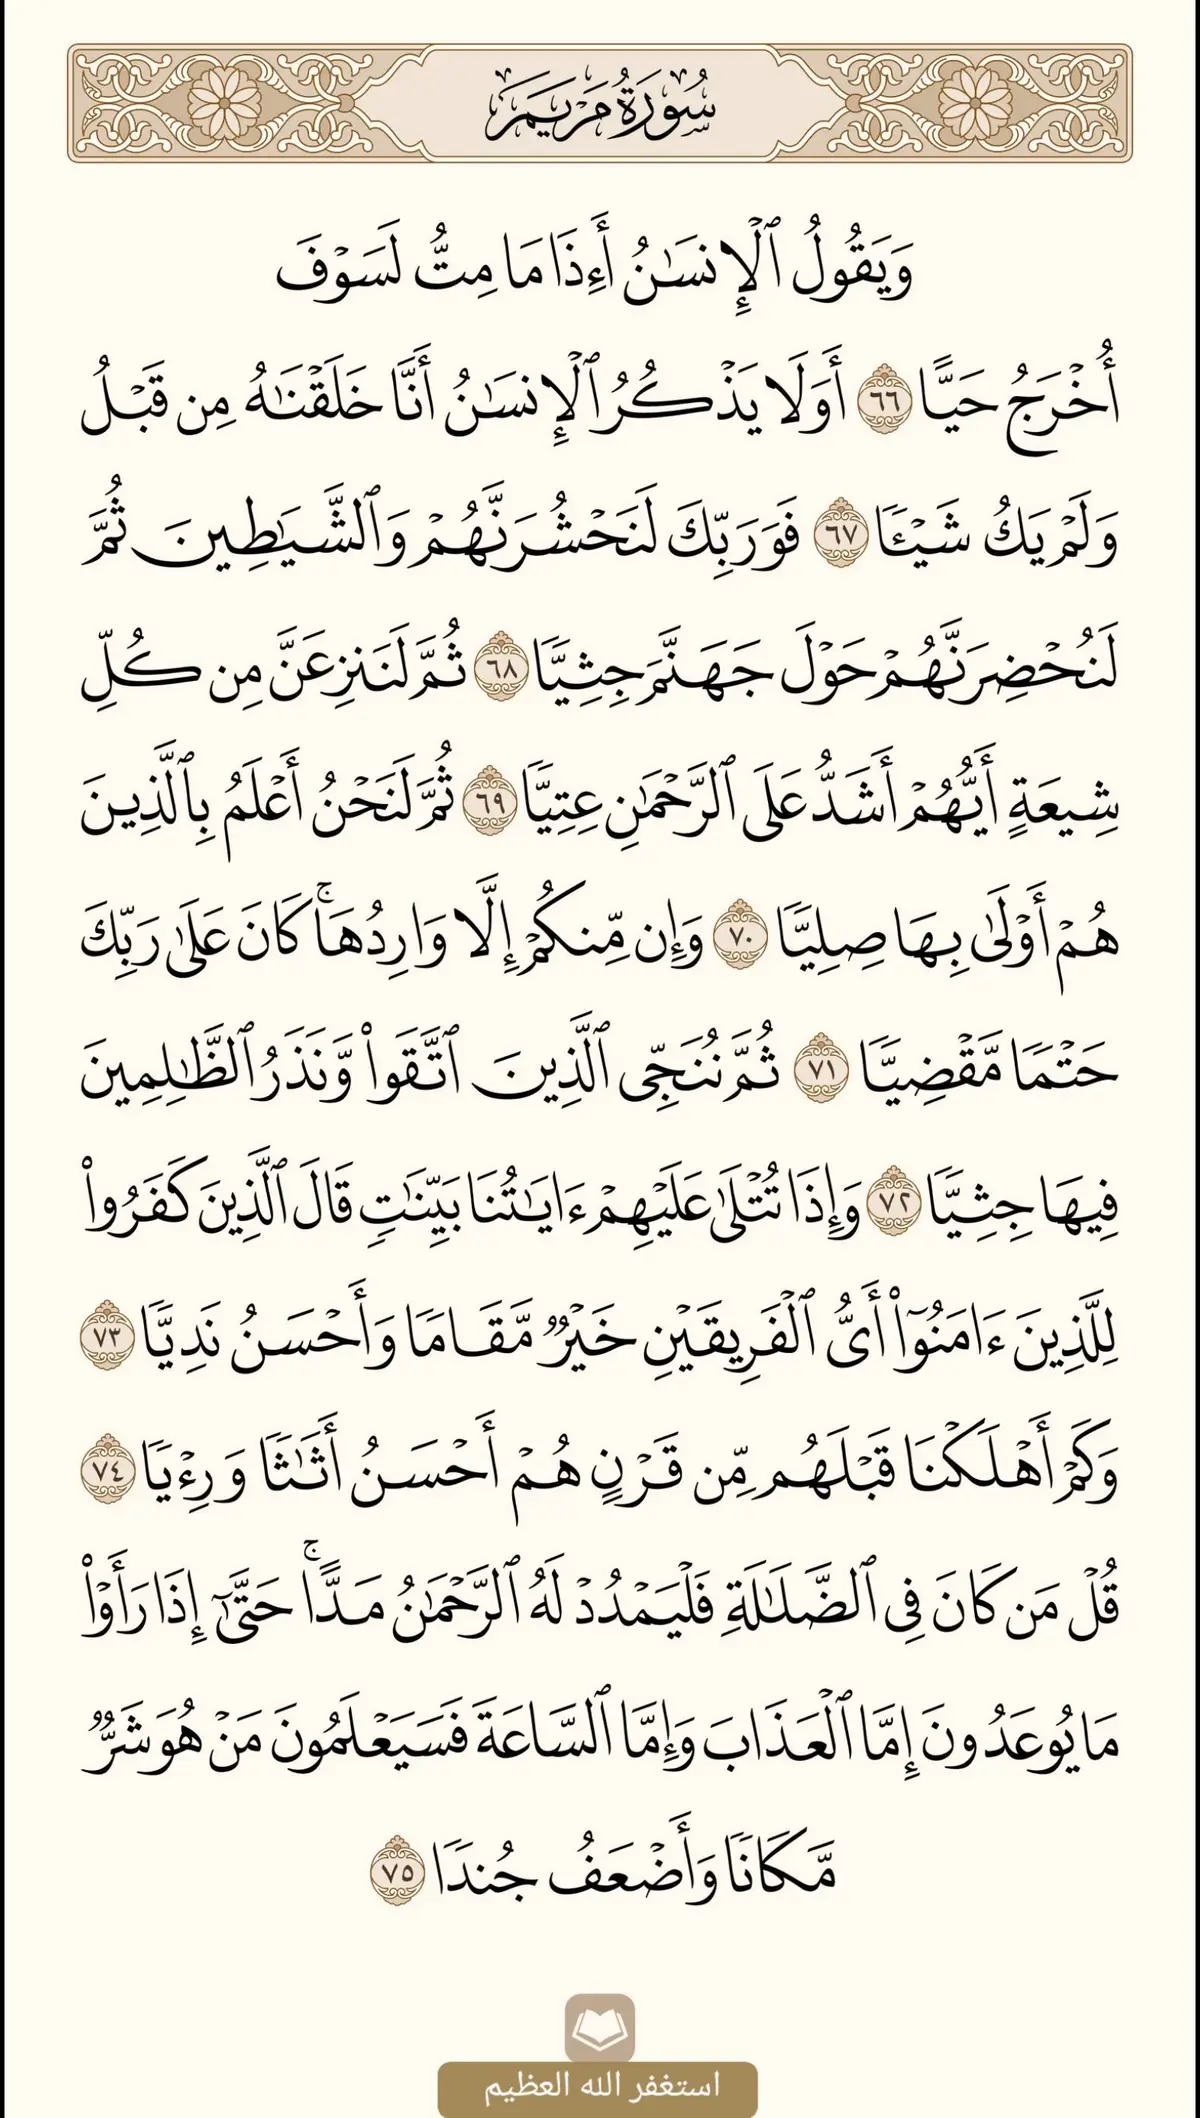 سُورَةُ مَرْيَمَ
وَيَقُولُ ٱلْإِنسَٰنُ أَءِذَا مَا مِتُّ لَسَوْفَ
أُخْرَجُ حَيًّا ٦٦ أَوَلَا يَذْكُرُ ٱلْإِنسَٰنُ أَنَّا خَلَقْنَٰهُ مِن قَبْلُ
وَلَمْ يَكُ شَيْـًٔا ٦٧ فَوَرَبِّكَ لَنَحْشُرَنَّهُمْ وَٱلشَّيَٰطِينَ ثُمَّ
لَنُحْضِرَنَّهُمْ حَوْلَ جَهَنَّمَ جِثِيًّا ٦٨ ثُمَّ لَنَنزِعَنَّ مِن كُلِّ
شِيعَةٍ أَيُّهُمْ أَشَدُّ عَلَى ٱلرَّحْمَٰنِ عِتِيًّا ٦٩ ثُمَّ لَنَحْنُ أَعْلَمُ بِٱلَّذِينَ
هُمْ أَوْلَىٰ بِهَا صِلِيًّا ٧٠ وَإِن مِّنكُمْ إِلَّا وَارِدُهَا ۚ كَانَ عَلَىٰ رَبِّكَ
حَتْمًا مَّقْضِيًّا ٧١ ثُمَّ نُنَجِّى ٱلَّذِينَ ٱتَّقَوا۟ وَّنَذَرُ ٱلظَّٰلِمِينَ
فِيهَا جِثِيًّا ٧٢ وَإِذَا تُتْلَىٰ عَلَيْهِمْ ءَايَٰتُنَا بَيِّنَٰتٍ قَالَ ٱلَّذِينَ كَفَرُوا۟
لِلَّذِينَ ءَامَنُوٓا۟ أَىُّ ٱلْفَرِيقَيْنِ خَيْرٌ مَّقَامًا وَأَحْسَنُ نَدِيًّا ٧٣
وَكَمْ أَهْلَكْنَا قَبْلَهُم مِّن قَرْنٍ هُمْ أَحْسَنُ أَثَٰثًا وَرِءْيًا ٧٤
قُلْ مَن كَانَ فِى ٱلضَّلَٰلَةِ فَلْيَمْدُدْ لَهُ ٱلرَّحْمَٰنُ مَدًّا ۚ حَتَّىٰٓ إِذَا رَأَوْا۟
مَا يُوعَدُونَ إِمَّا ٱلْعَذَابَ وَإِمَّا ٱلسَّاعَةَ فَسَيَعْلَمُونَ مَنْ هُوَ شَرٌّ
مَّكَانًا وَأَضْعَفُ جُندًا ٧٥
استغفر الله العظيم